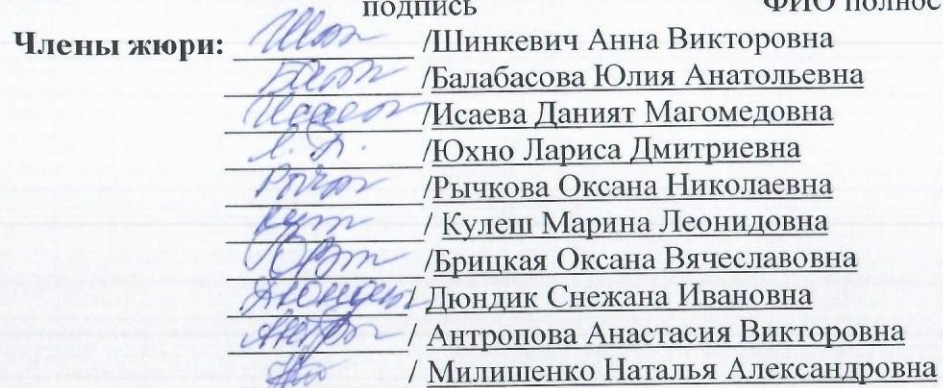 подпись ФИО полнос
Члены жюри: /Шинкевич Анна Викторовна
/Балабасова Юлия Анатольевна
/Исаева Даният Магомедовна
/Юхно Лариса Дмитриевна
/Рычкова Оксана Николаевна
/ Кулеш Марина Леонидовна
/Брицкая Оксана Вячеславовна
/ Дюндик Снежана Ивановна
/ Антропова Анастасия Викторовна
/ Милишенко Наталья Александровна